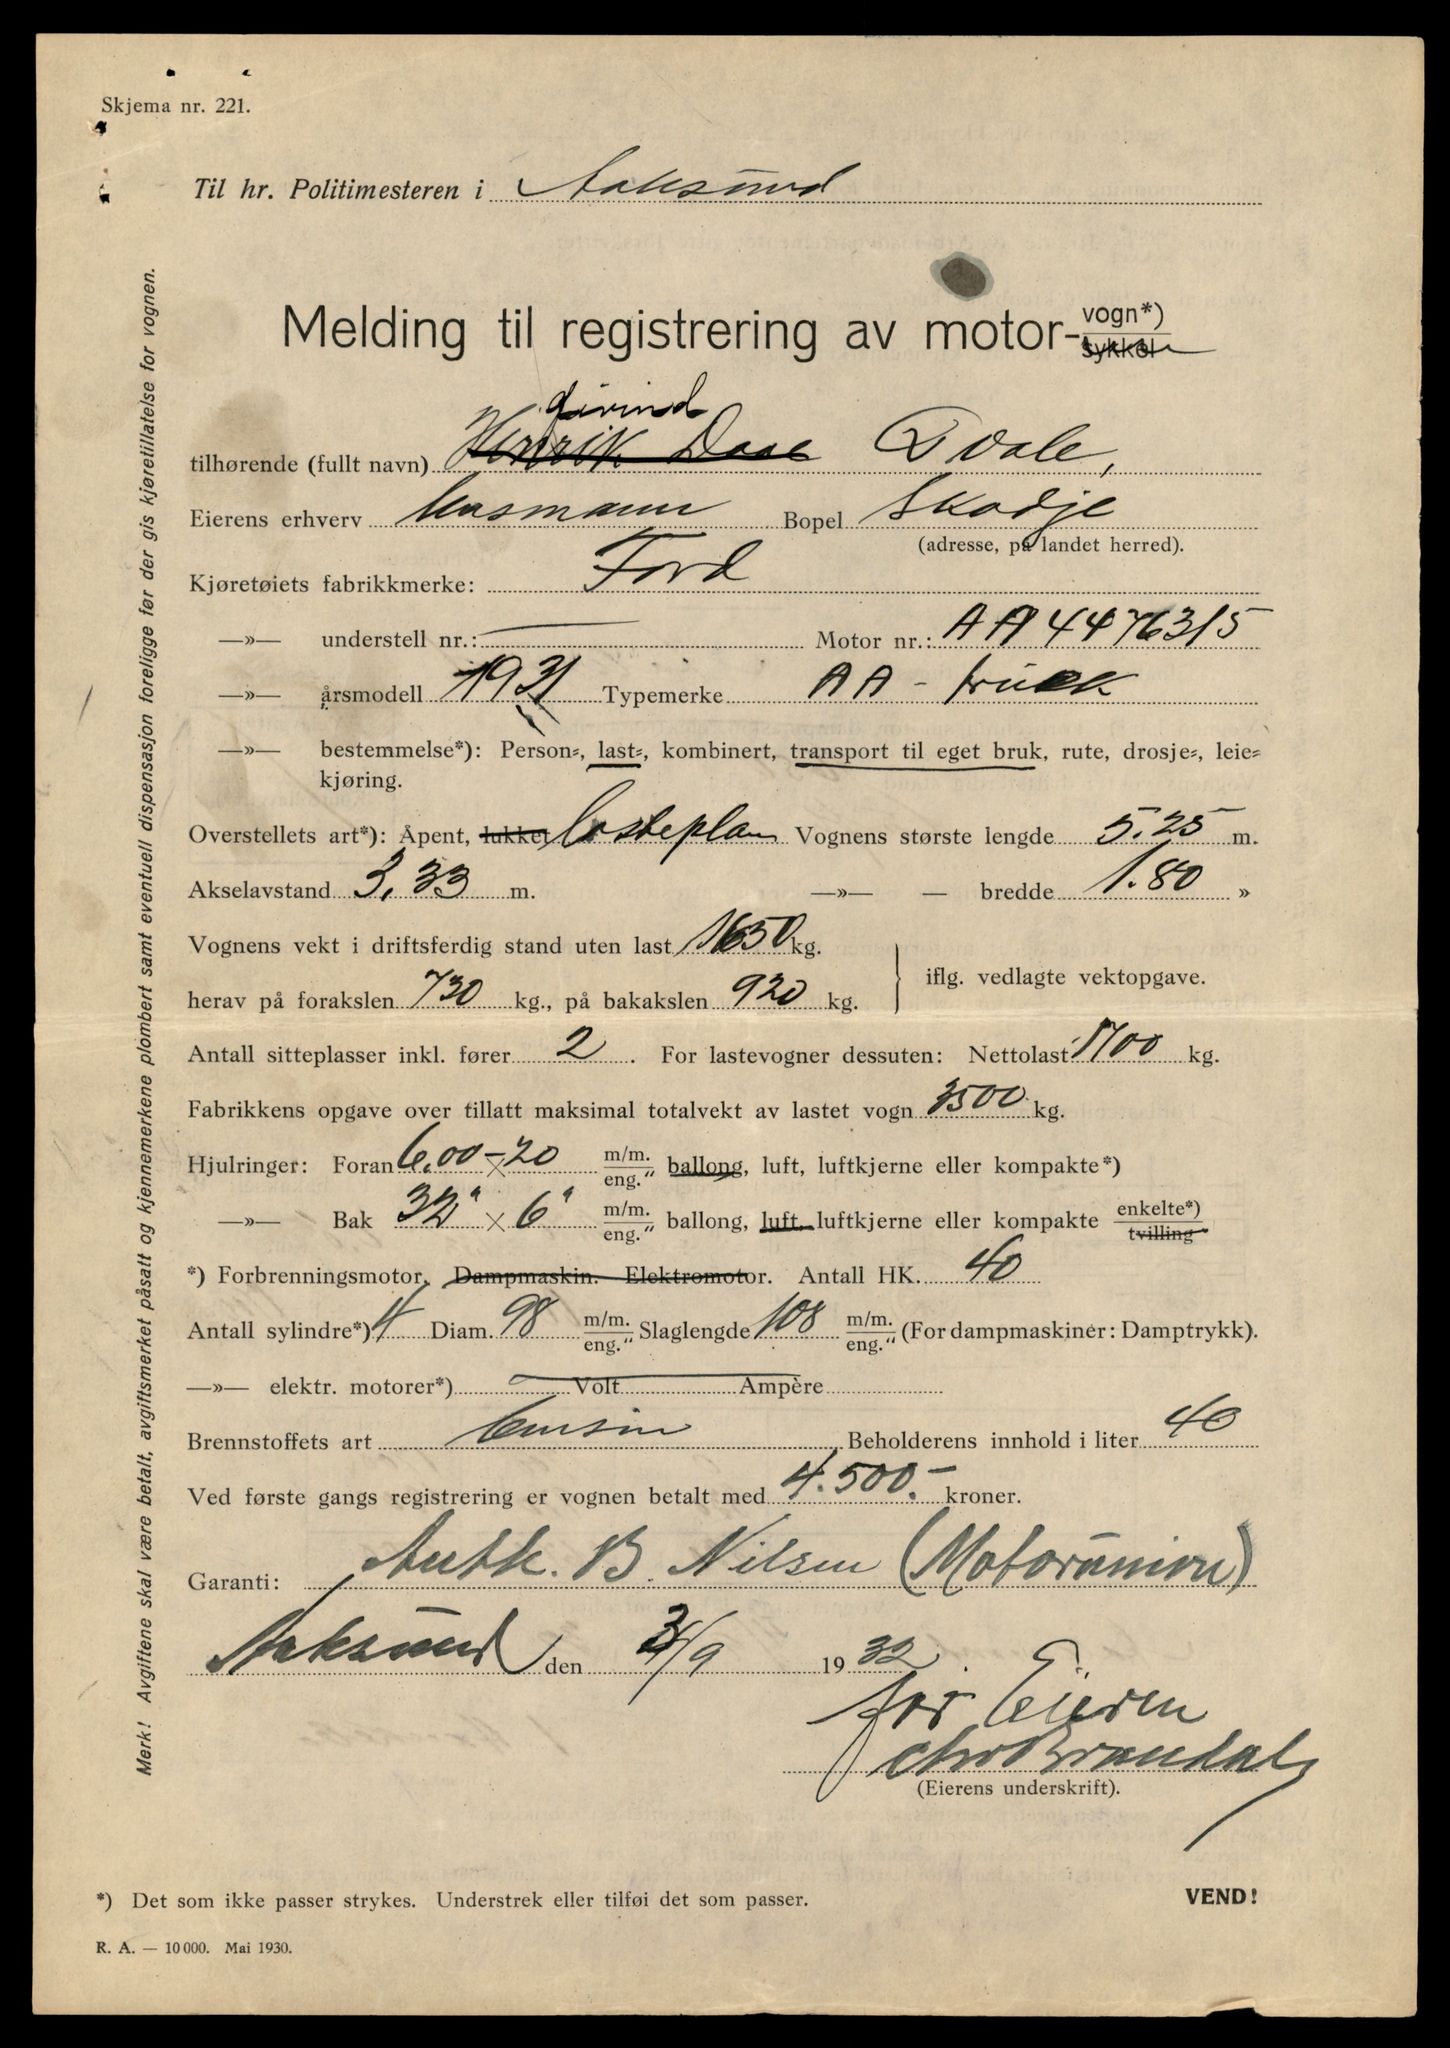 Skjema nr. 221.
Til hr. Politimesteren i Aalesund
Melding til registrering av motor- vogn*)
sykkel
Eivind
tilhørende (fullt navn) Henrik Daae Dvale,
Eierens erhverv Bopel Skodje
(adresse, på landet herred).
Kjøretøiets fabrikkmerke: Ford
—»— understell nr.: Motor nr.: AA 4476315
—»— årsmodell 1931 Typemerke AA - truck
—»— bestemmelse*): Person-, last-, kombinert, transport til eget bruk, rute, drosje-, leie-
kjøring.
Overstellets art*): Åpent, lukket lasteplan Vognens største lengde 5.25 m.
Akselavstand 3,33 m. —»— — bredde 1.80 »
Vognens vekt i driftsferdig stand uten last 1650 kg.
herav på forakslen 730 kg., på bakakslen 920 kg. } iflg. vedlagte vektopgave.
Antall sitteplasser inkl. fører 2 . For lastevogner dessuten: Nettolast 1700 kg.
Fabrikkens opgave over tillatt maksimal totalvekt av lastet vogn 3500 kg.
Hjulringer: Foran 6,00 × 20 m/m. eng." ballong, luft, luftkjerne eller kompakte*)
—»— Bak 32" × 6" m/m. eng." ballong, luft, luftkjerne eller kompakte enkelte*) tvilling
*) Forbrenningsmotor. Dampmaskin. Elektromotor. Antall HK. 40
Antall sylindre*) 4 Diam. 98 m/m. eng." Slaglengde 108 m/m. eng." (For dampmaskiner: Damptrykk).
—»— elektr. motorer*) Volt Ampère
Brennstoffets art bensin Beholderens innhold i liter 40
Ved første gangs registrering er vognen betalt med 4.500.- kroner.
Garanti: B. Nilsen (Motorunion)
Aalesund den 3/9 1932
for Eieren
Brandal
(Eierens underskrift).
*) Det som ikke passer strykes. Understrek eller tilføi det som passer. VEND!
R. A. — 10 000. Mai 1930.
Merk! Avgiftene skal være betalt, avgiftsmerket påsatt og kjennemerkene plombert samt eventuell dispensasjon foreligge før der gis kjøretillatelse for vognen.